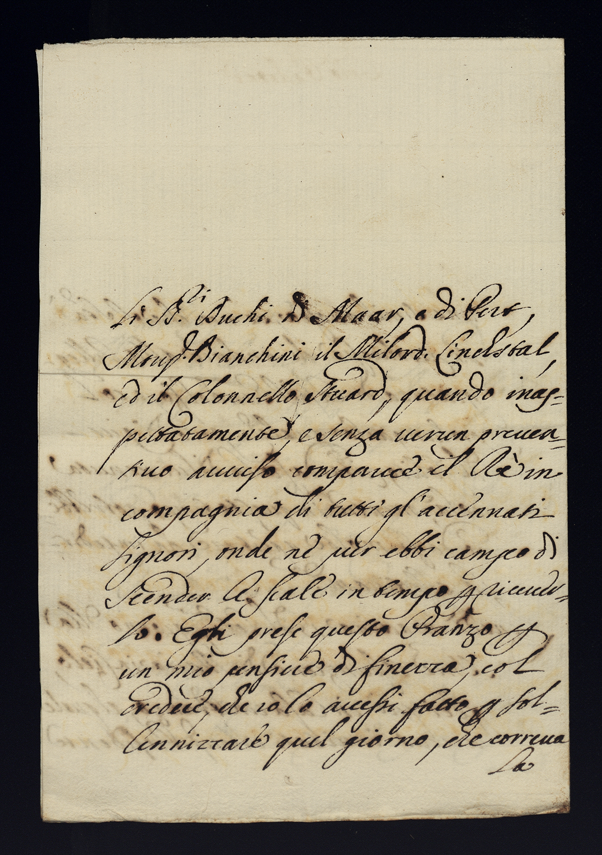 Li Sri. Duchi di Maar, e di Pert,
Monsr. Bianchini il Milord. Linchstal,
ed il Colonnello Stuard, quando inas-
pettatamente, e senza verun preven-
tivo avviso comparve il Rè in
compagnia di tutti gl'accennati
Signori, onde nè pur ebbi campo di
scender le scale in tempo p ricever-
lo. Egli prese questo Pranzo p
un mio pensiere di finezza, col
credere, che io lo avessi fatto p sol-
lennizzare quel giorno, che correva
la